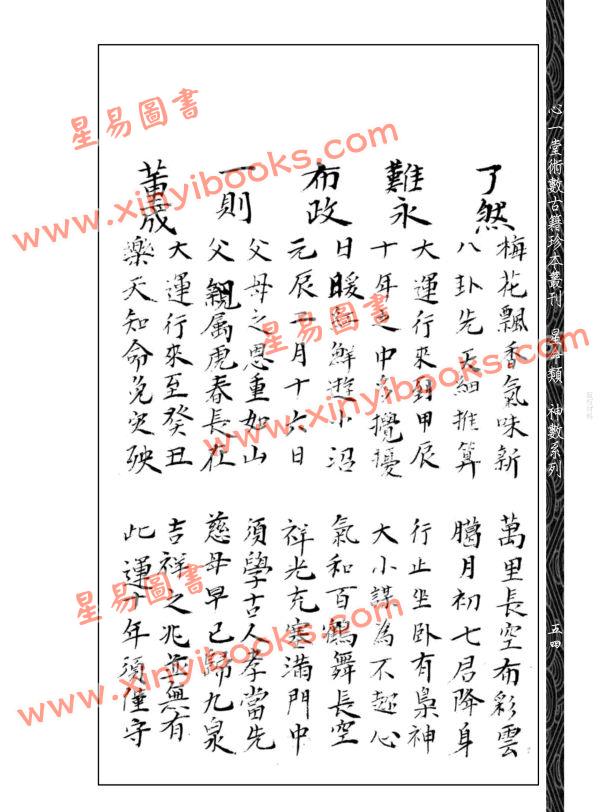 心一堂術數古籍珍本叢刊 星命類 神數系列
五四
了然
梅花飄香氣味新 萬里長空布彩雲
八卦先天細推算 臈月初七君降身
難永
大運行來到甲辰 行止坐卧有梟神
十年之中多攪擾 大小謀為不趂心
布政
日暖 鮮遊小沼 氣和百鶴舞長空
元辰 月十六日 祥光充塞滿門中
一則
父母之恩重如山 須學古人孝當先
父親属虎春長在 慈母早已歸九泉
萬歲
大運行來至癸丑 吉祥之兆並無有
樂天知命免灾殃 此運十年須僅守
星易圖書
www.xinyibooks.com
星易圖書
www.xinyibooks.com
星易圖書
www.xinyibooks.com